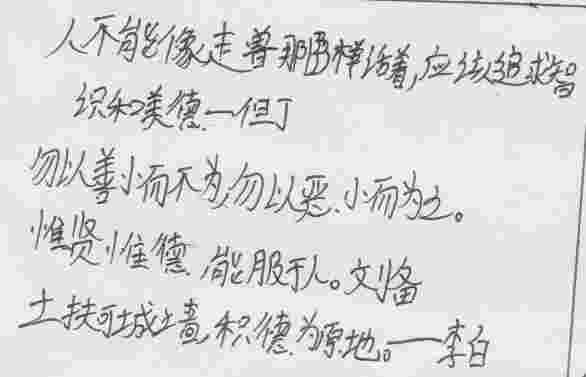 人不能像走兽那样活着,应该追求智
识和美德一但丁
勿以善小而不为,勿以恶小而为之。
惟贤惟德,能服于人。刘备
土扶可城墙,积德为厚地。——李白